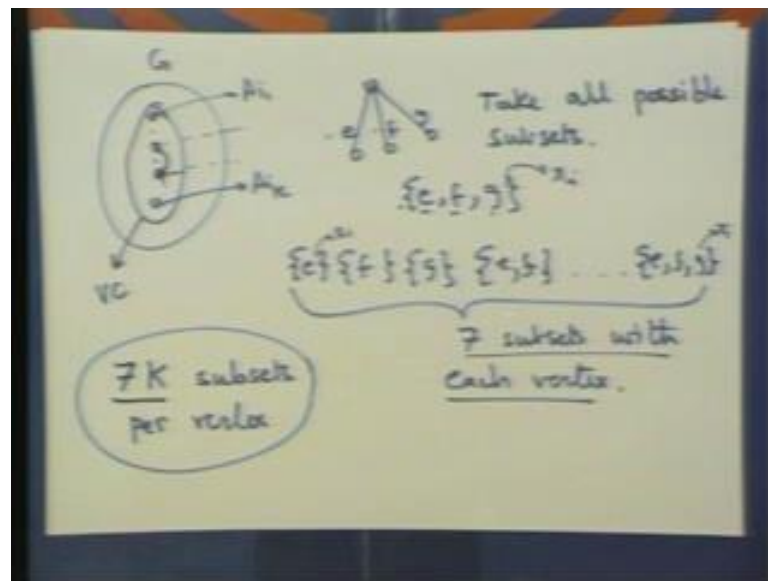 G
Take all possible
subsets.
e f g
{e, f, g}
VC
{e} {f} {g} {e, f} .... {e, f, g}
7 subsets with
each vertex.
7K subsets
per vertex